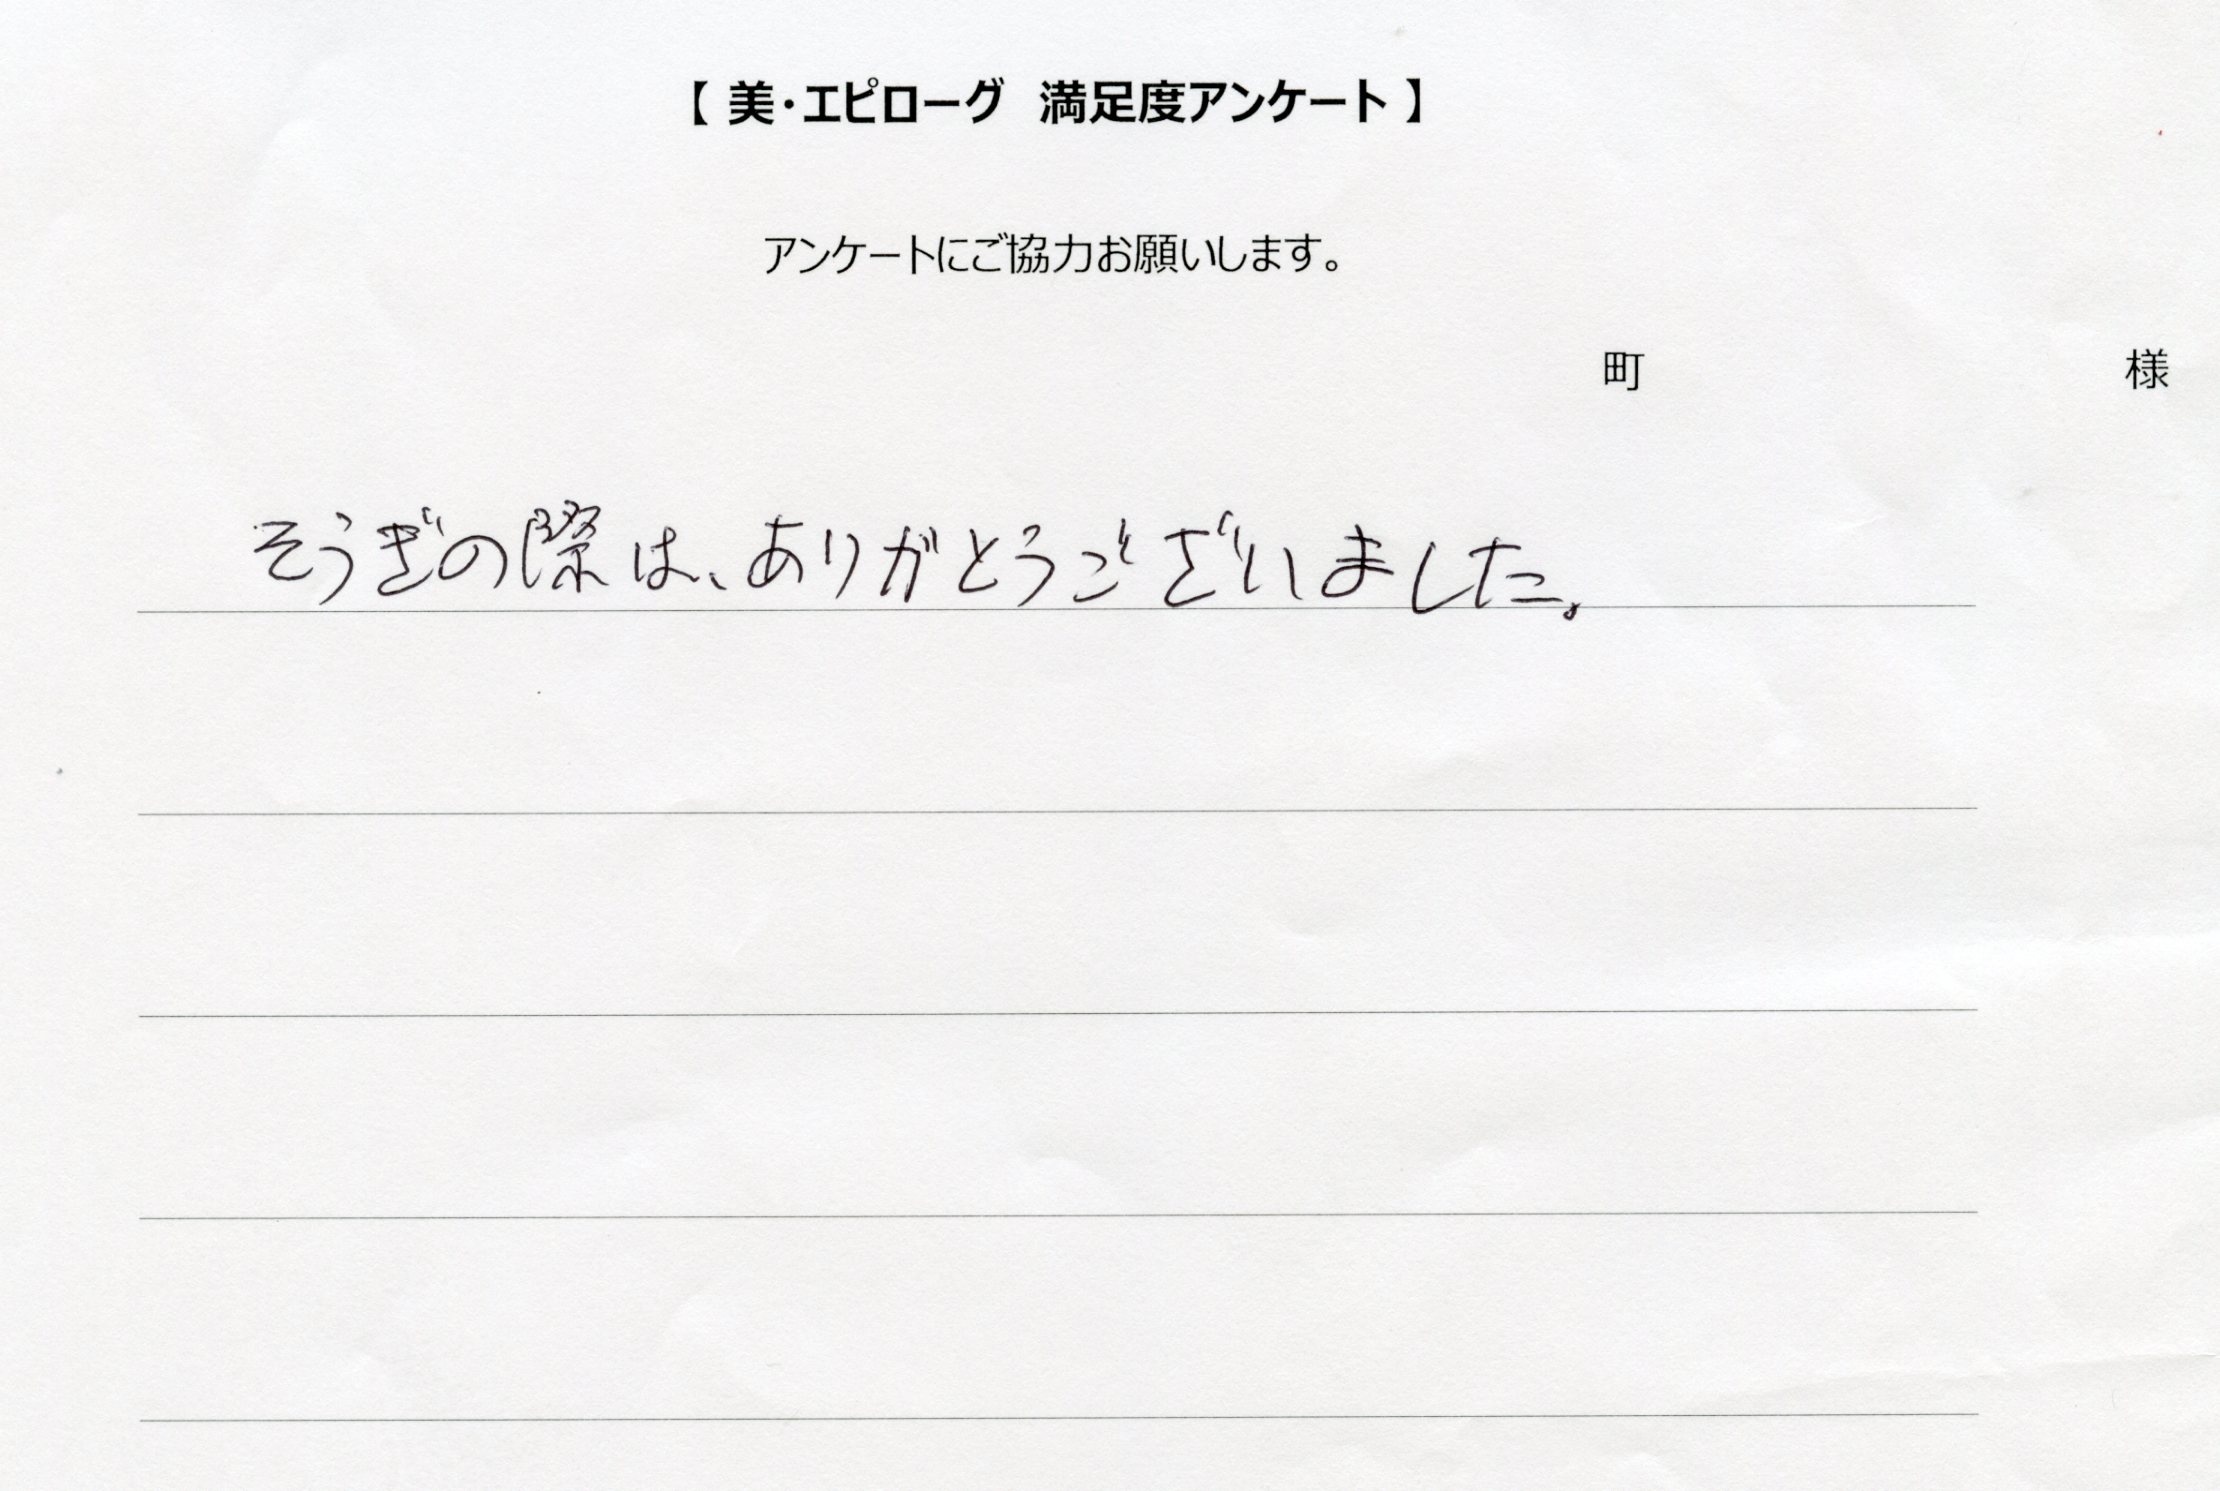 【 美・エピローグ　満足度アンケート 】
アンケートにご協力お願いします。
町　　　　　　　　様
そうぎの際は、ありがとうございました。